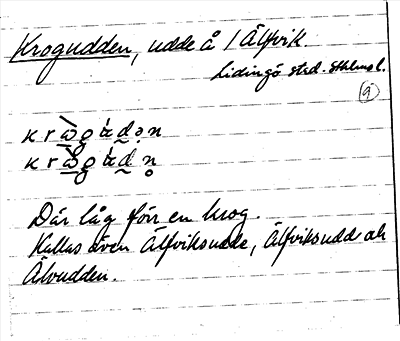 Krogudden, udde å / Älfvik.
Lidingö sted. Sthlms l.
9
Där låg förr en krog.
Kallas även Älfviksudde, Älfviksudd och
Älvudden.